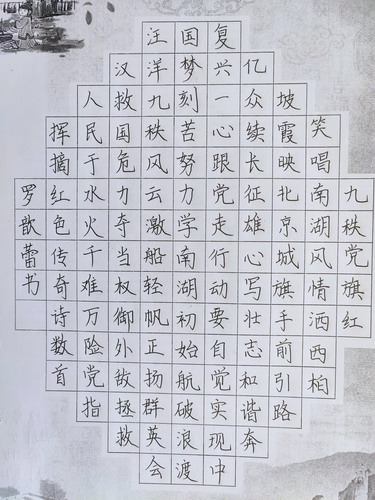 九秩党旗红
笑唱南湖风情洒西柏
坡霞映北京城旗手前引路
亿众续长征雄心写壮志和谐奔
复兴一心跟党走行动要自觉实现中
国梦刻苦努力学南湖初始航破浪渡
汪洋九秩风云激船轻帆正扬群英会
汉救国危力夺当权御外敌拯救
人民于水火千难万险党指
挥摘红色传奇诗数首
罗歆蕾书